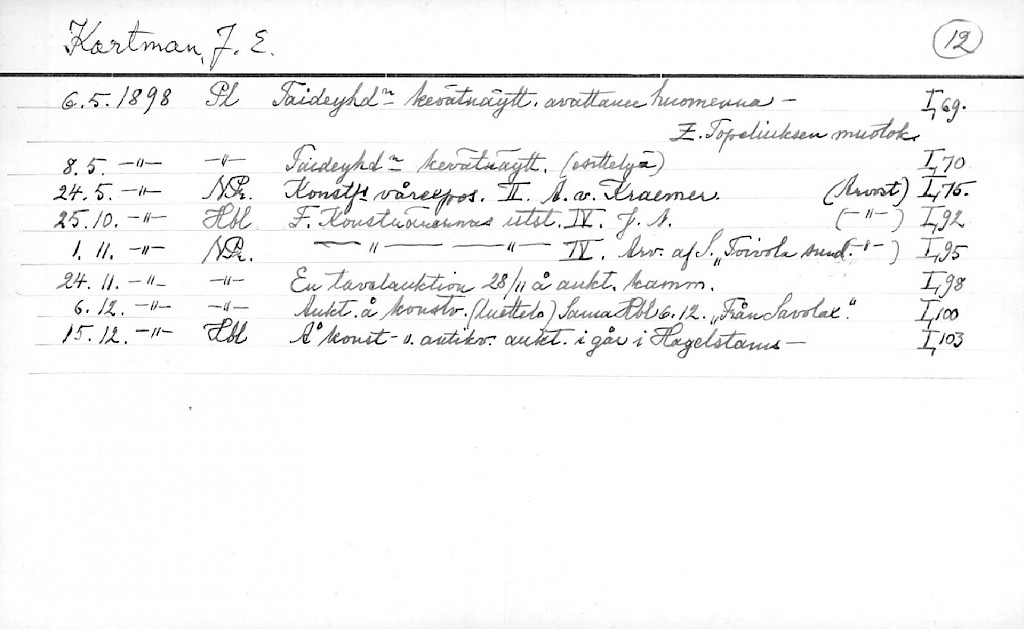 Kortman, J. E. 12
6.5.1898 Pl Taideyhd:n kevätnäytt. avattanee huomenna — I,69.
Z. Topeliuksen muotok.
8.5. -"- -"- Taideyhd:n kevätnäytt. (esittelyä) I,70
24.5. -"- NPr. Konstf:s vårexpos. II. A. v. Kraemer. (Arvost) I,75.
25.10. -"- Hbl F. Konstnärernas utst. IV. J. A. (-"-) I,92
1.11. -"- NPr. — " — — " — IV. Arv. af S. „Toivola sund." (-"-) I,95
24.11. -"- -"- En tavelauktion 28/11 å aukt. kamm. I,98
6.12. -"- -"- Aukt. å konstv. (luettelo) Sama Hbl 6.12. „Från Savolax." I,100
15.12. -"- Hbl Å konst- o. antikv. aukt. i går i Hagelstams — I,103